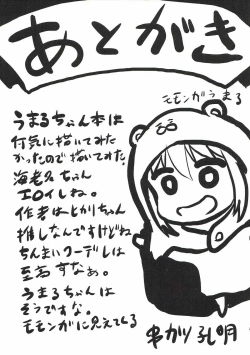 あとがき
モモンガうまる
うまるちゃん本は
行気に描いてみた
かったので描いてみた。
海老名ちゃん
エロイしね。
作者はヒカリちゃん
推しなんですけどね
ちんまいクーデレは
至高すなぁ。
うまるちゃんは
そうですな。
モモンガに見えてくる
串カツ孔明